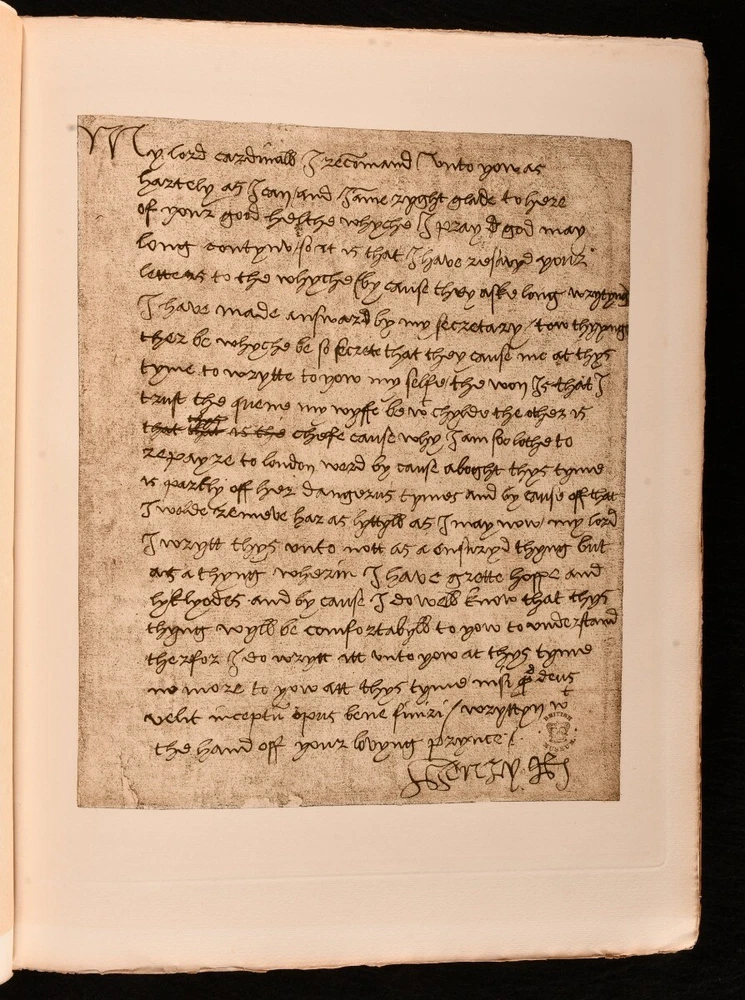 My lord cardinall I recomand unto yow as
hartely as I can and I ame ryght glade to here
of your good helthe whyche I pray god may
long contynw / so it is that I have resavyd your
letters to the whyche (by cause they aske long wrytyng
I have made answar by my secretary / tow thyngs
ther be whyche be so secrete that they cause me at thys
tyme to wrytte to yow my selfe / the won is that I
trust the quene my wyffe be wt chylde the other is
chefe cause why I am so lothe to
repayre to london ward by cause aboght thys tyme
is partly off her dangerus tymes and by cause off that
I wolde remeve har as lyttyll as I may now / my lord
I wrytt thys unto nott as a ensuryd thyng but
as a thyng wherin I have grette hoppe and
lyklyodes and by cause I do well know that thys
thyng wyll be comfortabyll to yow to understand
therfor I do wrytt itt unto yow at thys tyme
no more to yow att thys tyme nisi qd deus
velit inceptū opus bene finiri / wryttyn wt
the hand off your lovyng prynce /.
Henry R
BRITISH MUSEUM